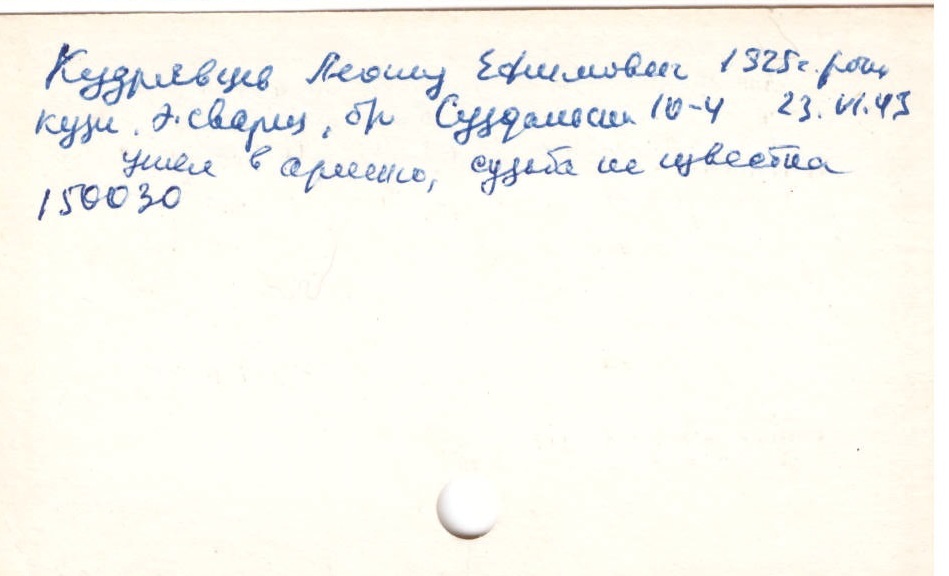 Кудрявцев Леонид Ефимович 1925г. рожд
кузн. эл.сварщ, б/п Суздальская 10-4 23.VI.43
ушел в армию, судьба не известна
150030